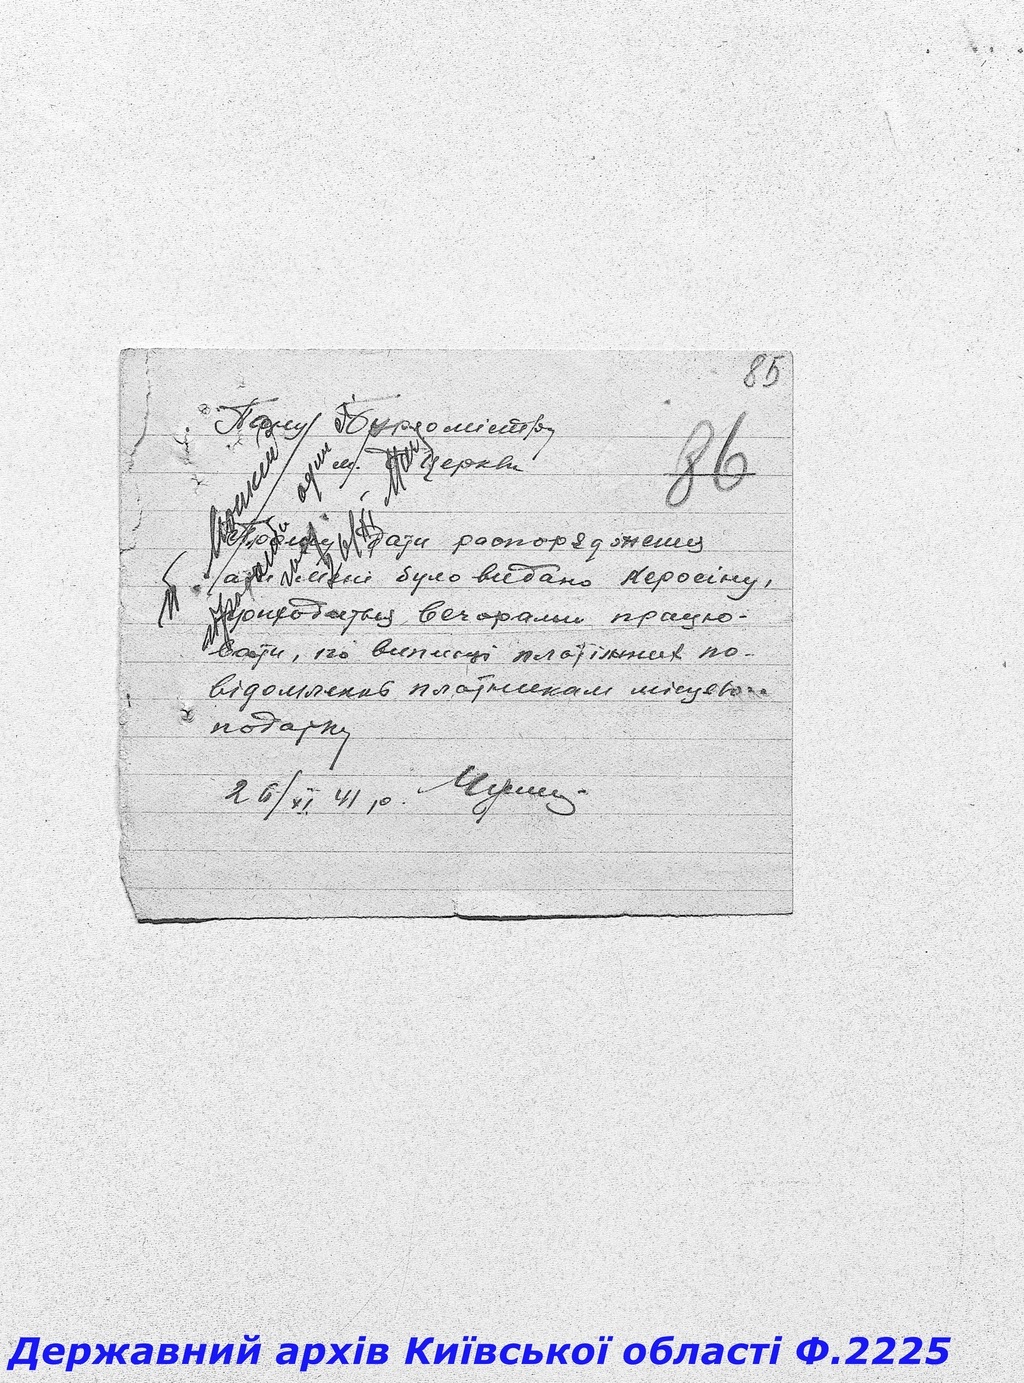 85
86
Пану Бургомістру
м. Б Церкви
Прошу дати распорядження
аби мені було видано керосіну,
приходиться вечорами працю-
вати, по виписці платіжних по-
відомленнь платникам місцевого
податку
26/XI 41 р.
один
26/XI
Державний архів Київської області Ф.2225